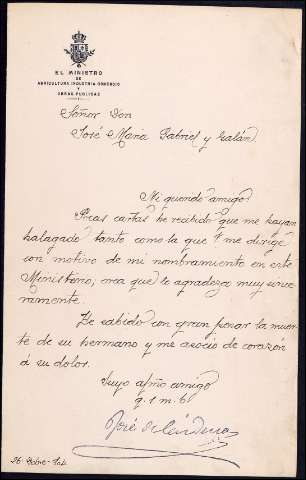 EL MINISTRO
DE
AGRICULTURA INDUSTRIA COMERCIO
Y
OBRAS PUBLICAS
Señor Don
José María Gabriel y Galán.
Mi querido amigo:
Pocas cartas he recibido que me hayan
halagado tanto como la que V. me dirige
con motivo de mi nombramiento en este
Ministerio; crea que le agradezco muy since
ramente.
He sabido con gran pesar la muer-
te de su hermano y me asocio de corazón
á su dolor.
Suyo afmo amigo
q. l. m. b.
José de